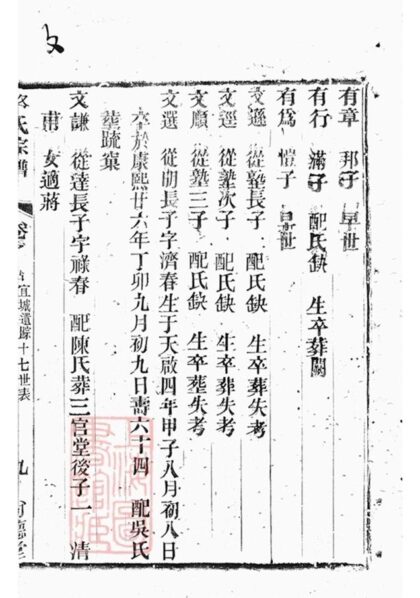 文
有章 邦子 早世
有行 滿子 配氏缺 生卒葬闕
有為 愷子 早世
文遜 從塾長子 配氏缺 生卒葬失考
文逕 從塾次子 配氏缺 生卒葬失考
文願 從塾三子 配氏缺 生卒葬失考
文選 從胡長子字濟春生于天啟四年甲子八月初八日
卒於康熙廿六年丁卯九月初九日壽六十四 配吳氏
葬疏巢
文謙 從達長子字祿春 配陳氏葬三官堂後子一 清
甫 女適蔣
氏宗譜
宜城遺踪十七世表
九